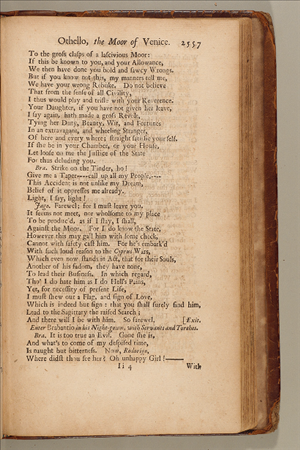 Othello, the Moor of Venice. 2557
To the gross clasps of a lascivious Moor:
If this be known to you, and your Allowance,
We then have done you bold and sawcy Wrongs.
But if you know not this, my manners tell me,
We have your wrong Rebuke. Do not believe
That from the sense of all Civility,
I thus would play and trifle with your Reverence.
Your Daughter, if you have not given her leave,
I say again, hath made a gross Revolt,
Tying her Duty, Beauty, Wit, and Fortunes
In an extravagant, and wheeling Stranger,
Of here and every where; straight satisfie your self.
If she be in your Chamber, or your House,
Let loose on me the Justice of the State
For thus deluding you.
Bra. Strike on the Tinder, ho!
Give me a Taper----call up all my People,----
This Accident is not unlike my Dream,
Belief of it oppresses me already.
Light, I say, light!
Jago. Farewel; for I must leave you.
It seems not meet, nor wholesome to my place
To be produc'd, as if I stay, I shall,
Against the Moor. For I do know the State,
However this may gall him with some check,
Cannot with safety cast him. For he's embark'd
With such loud reason to the Cyprus Wars,
Which even now stands in Act, that for their Souls,
Another of his fadom, they have none,
To lead their Business. In which regard,
Tho' I do hate him as I do Hell's Pains,
Yet, for necessity of present Life,
I must shew out a Flag, and sign of Love,
Which is indeed but sign: that you shall surely find him,
Lead to the Sagittary the raised Search;
And there will I be with him. So farewel. [Exit.
Enter Brabantio in his Night-gown, with Servants and Torches.
Bra. It is too true an Evil. Gone she is,
And what's to come of my despised time,
Is naught but bitterness. Now, Rodorigo,
Where didst thou see her? Oh unhappy Girl!----
Ii 4 With